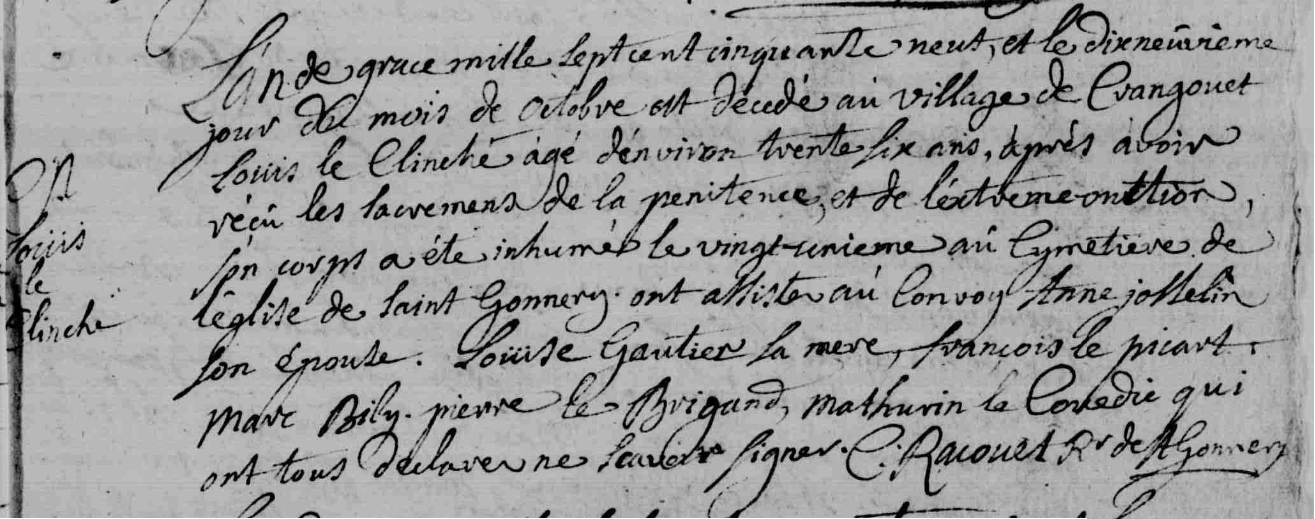 L'an de grace mille sept cent cinquante neuf, et le dixneüvieme
jour du mois de Octobre est décedé au village de Crangouet
Loüis le Clinche agé d'environ trente six ans, áprés avoir
réçû les sacremens de la penitence, et de l'éxtreme onction,
són corps a été inhumé le vingt-unieme aû Cymetiere de
léglise de saint Gonnery. ont assisté aú Convoy Anne josselin
son épouse. Loüise Gautier sa mere, françois le picart.
Marc Bily. pierre le Brigand, Mathurin le Couedic qui
ont tous déclarer ne scavoir signer. C: Racouet Rr de St Gonnery
Loüis
le
Clinche